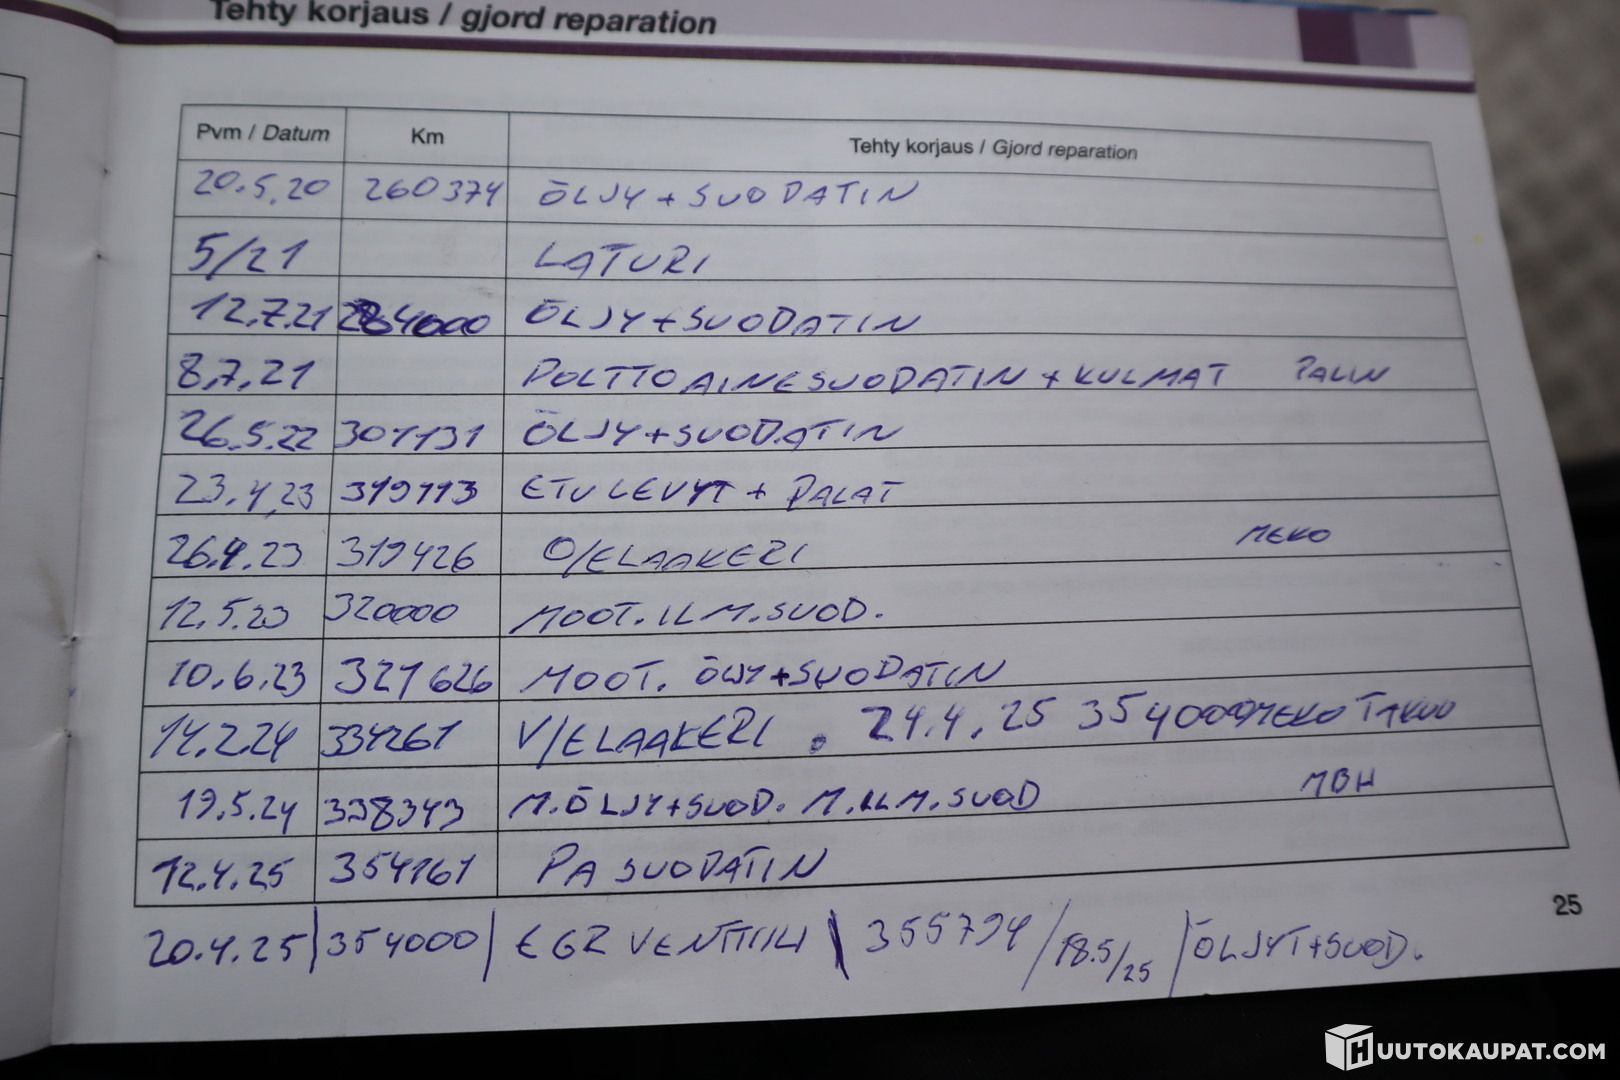 Tehty korjaus / gjord reparation
Pvm / Datum Km Tehty korjaus / Gjord reparation
20.5.20 260374 ÖLJY + SUODATIN
5/21 LATURI
12.7.21 284000 ÖLJY + SUODATIN
8.7.21 POLTTOAINESUODATIN + KULMAT
26.5.22 301131 ÖLJY + SUODATIN
23.4.23 319113 ETULEVYT + PALAT
26.4.23 319426 O/ELAAKERI MEKO
12.5.23 320000 MOOT. ILM. SUOD.
10.6.23 321626 MOOT. ÖLJY + SUODATIN
14.2.24 334261 V/ELAAKERI . 24.4.25 354000 MEKO TAKUU
19.5.24 338343 M.ÖLJY+SUOD. M.ILM.SUOD MBH
12.4.25 354161 PA SUODATIN
25
20.4.25 | 354000 | EGR VENTTIILI \ 355794 / 18.5/25 / ÖLJYT+SUOD.
HUUTOKAUPAT.COM